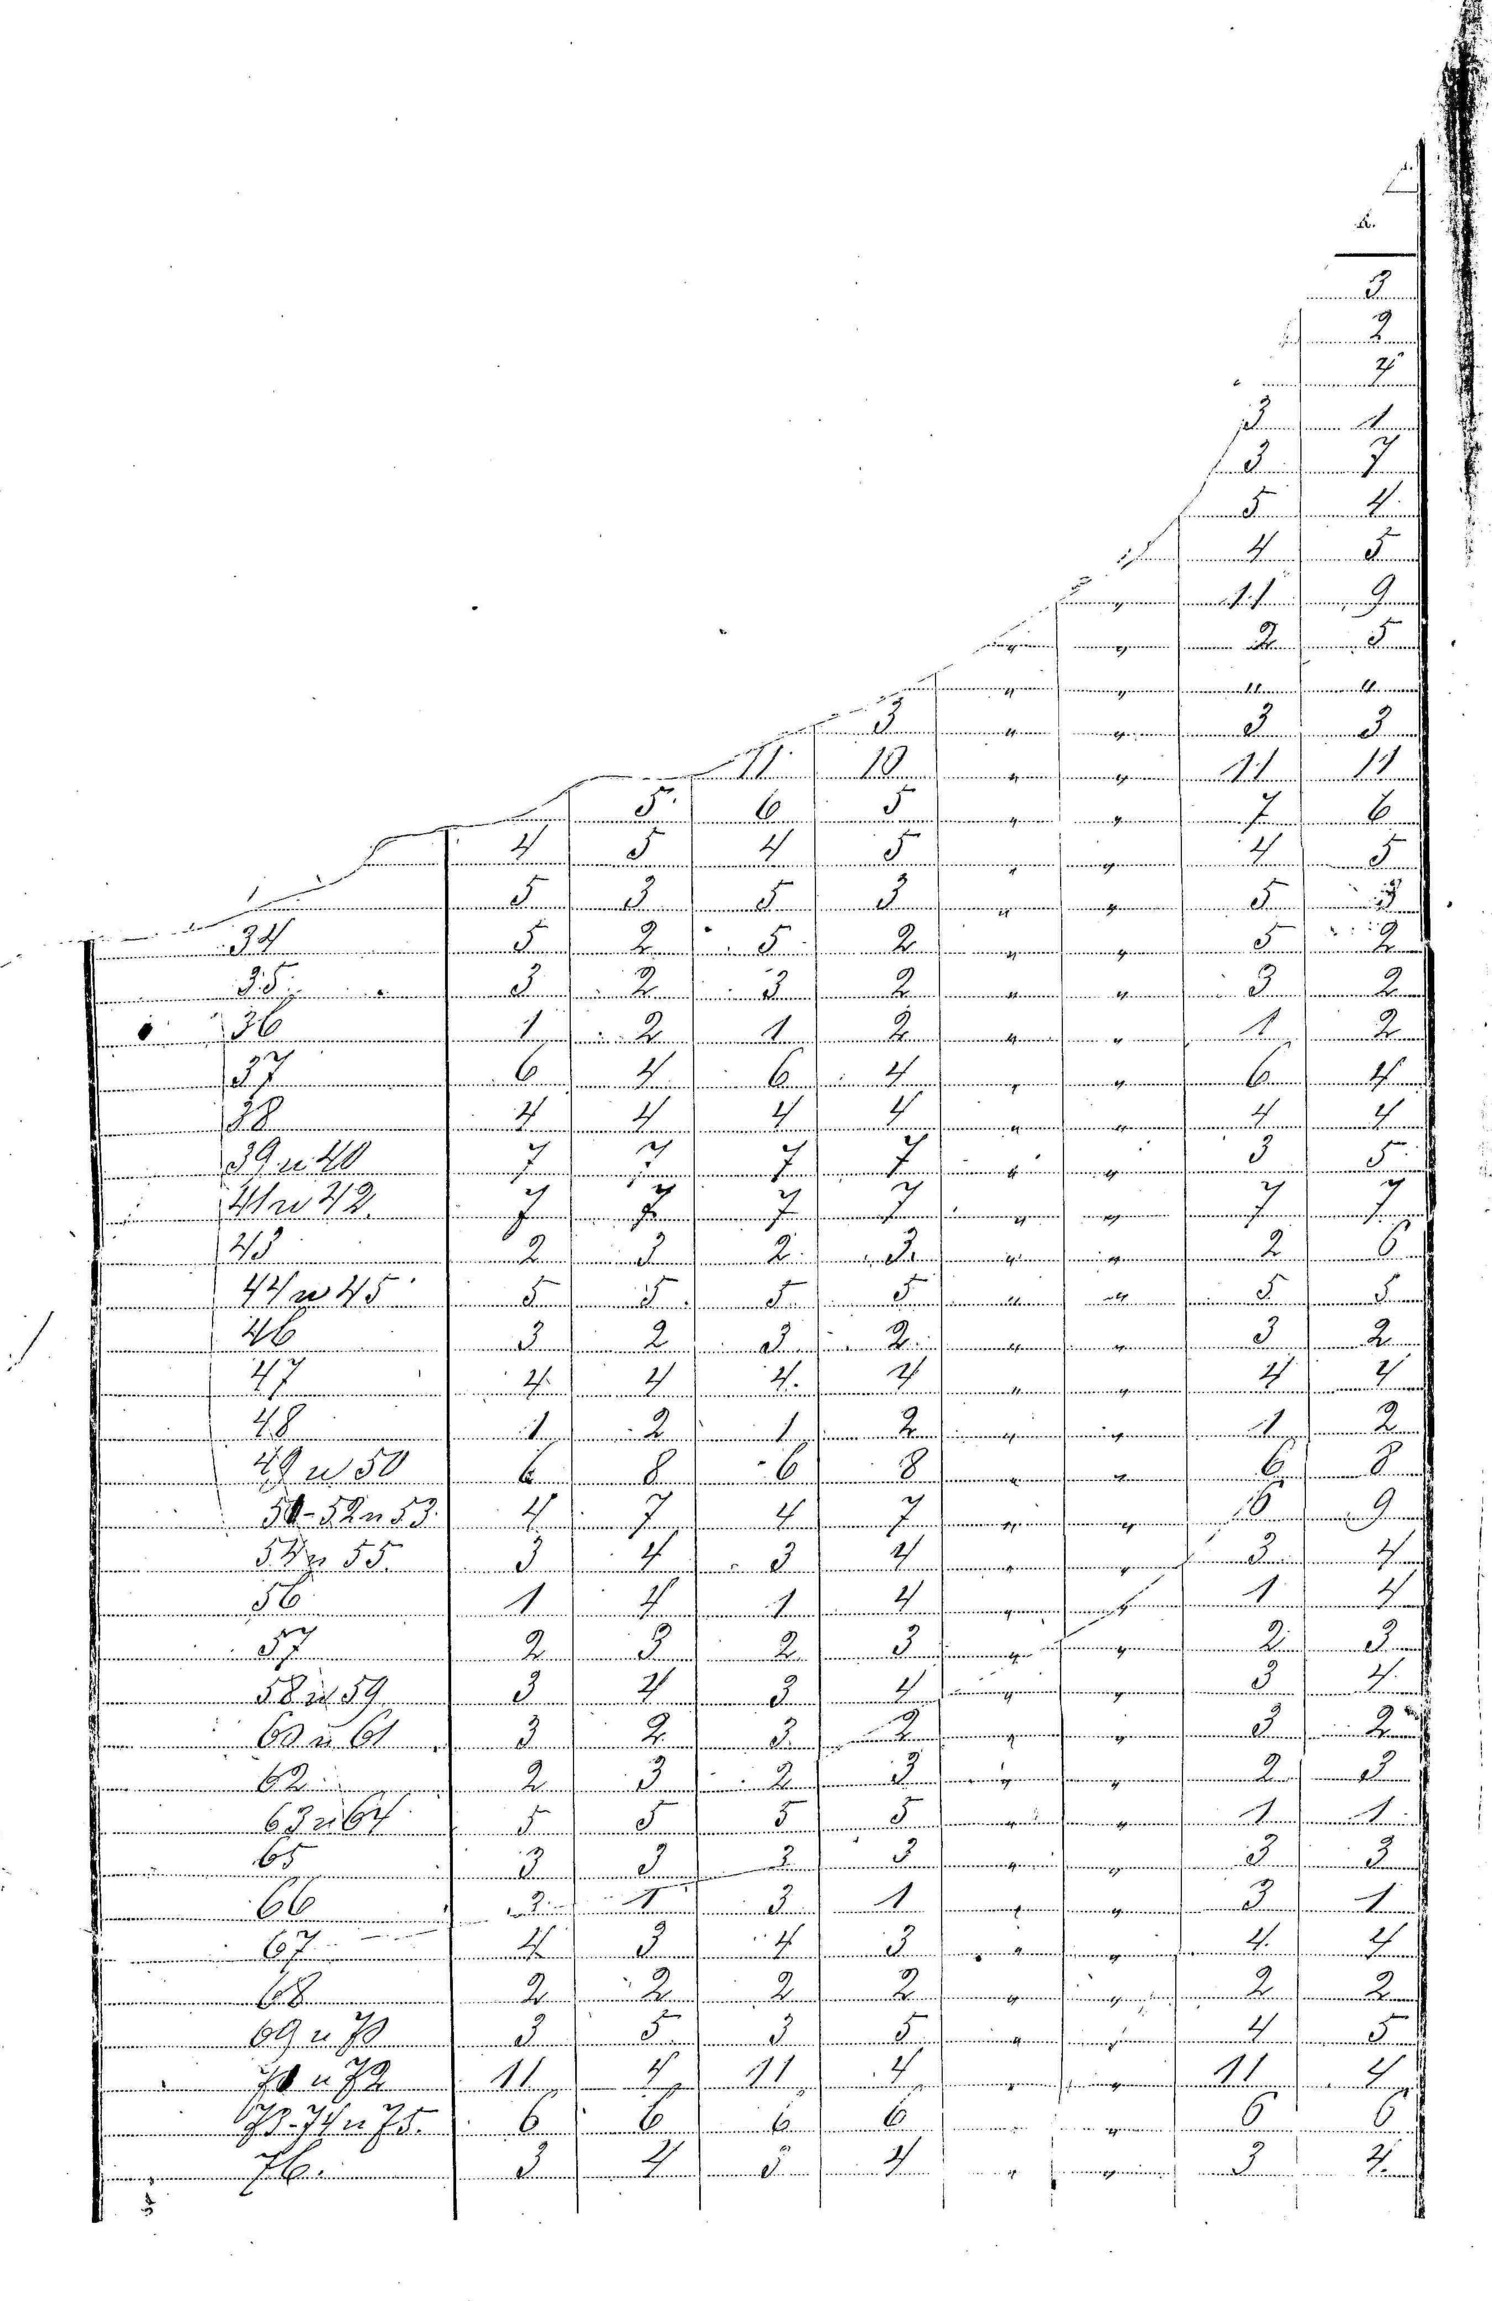 3
2
4
3 1
3 7
5 4
4 5
" 11 9
" " 2 5
" " " "
3 " " 3 3
11 10 " " 11 11
5 6 5 " " 7 6
4 5 4 5 " " 4 5
5 3 5 3 " " 5 3
34 5 2 5 2 " " 5 2
35 3 2 3 2 " " 3 2
36 1 2 1 2 " " 1 2
37 6 4 6 4 " " 6 4
38 4 4 4 4 " " 4 4
39 u 40 7 7 7 7 " " 3 5
41 u 42. 7 7 7 7 " " 7 7
43 2 3 2 3 " " 2 6
44 u 45 5 5 5 5 " " 5 5
46 3 2 3 2 " " 3 2
47 4 4 4 4 " " 4 4
48 1 2 1 2 " " 1 2
49 u 50 6 8 6 8 " " 6 8
51-52 u 53. 4 7 4 7 " " 6 9
54 u 55. 3 4 3 4 " " 3 4
56 1 4 1 4 " " 1 4
57 2 3 2 3 " " 2 3
58 u 59 3 4 3 4 " " 3 4
60 u 61 3 2 3 2 " " 3 2
62 2 3 2 3 " " 2 3
63 u 64 5 5 5 5 " " 1 1
65 3 3 3 3 " " 3 3
66 3 1 3 1 " " 3 1
67 4 3 4 3 " " 4 4
68 2 2 2 2 " " 2 2
69 u 70 3 5 3 5 " " 4 5
71 u 72 11 4 11 4 " " 11 4
73-74 u 75. 6 6 6 6 " " 6 6
76. 3 4 3 4 " " 3 4